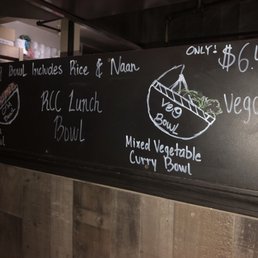 ONLY! $6.4
Bowl Includes Rice & Naan
RCC Lunch
Bowl
Veg
Bowl
Vega
Mixed Vegetable
Curry Bowl